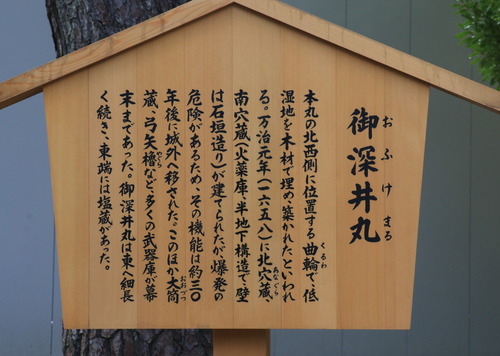 御深井丸
おふけまる
本丸の北西側に位置する曲輪で、低
くるわ
湿地を木材で埋め、築かれたといわれ
る。万治元年(一六五八)に北穴蔵、
あなぐら
南穴蔵(火薬庫、半地下構造で、壁
は石垣造り)が建てられたが、爆発の
危険があるため、その機能は約三〇
年後に城外へ移された。このほか大筒
おおづつ
蔵、弓矢櫓など、多くの武器庫が幕
やぐら
末まであった。御深井丸は東へ細長
く続き、東端には塩蔵があった。